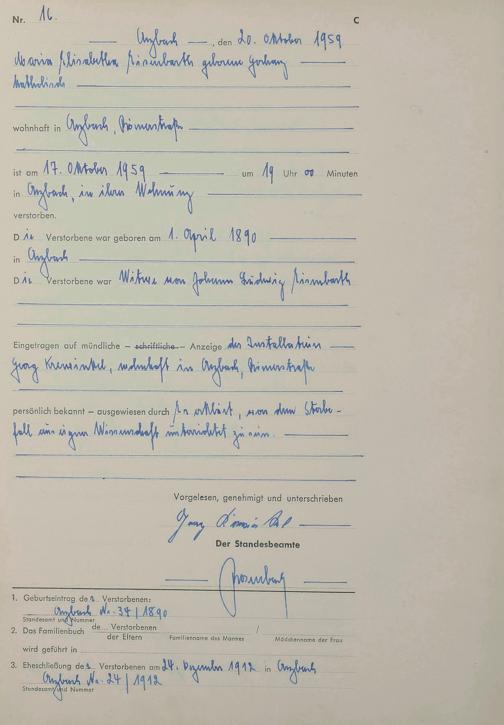 Nr. 16. C
Arzbach, den 20. Oktober 1959
Maria Elisabetha Eisenbarth geborene
katholisch
wohnhaft in Arzbach, Römerstraße
ist am 17. Oktober 1959 um 19 Uhr 00 Minuten
in Arzbach, in ihrer Wohnung
verstorben.
Die Verstorbene war geboren am 1. April 1890
in Arzbach
Die Verstorbene war Witwe von Johann Ludwig Eisenbarth
Eingetragen auf mündliche – schriftliche – Anzeige des Installateurs
Georg, wohnhaft in Arzbach, Römerstraße
persönlich bekannt – ausgewiesen durch Er erklärt, von dem Sterbe-
fall aus eigner Wissenschaft unterrichtet zu sein.
Vorgelesen, genehmigt und unterschrieben
Der Standesbeamte
1. Geburtseintrag des Verstorbenen:
Arzbach No. 34 / 1890
Standesamt und Nummer
2. Das Familienbuch des Verstorbenen /
der Eltern Familienname des Mannes Mädchenname der Frau
wird geführt in
3. Eheschließung des Verstorbenen am 24. Dezember 1912 in Arzbach
Arzbach No. 24 / 1912
Standesamt und Nummer